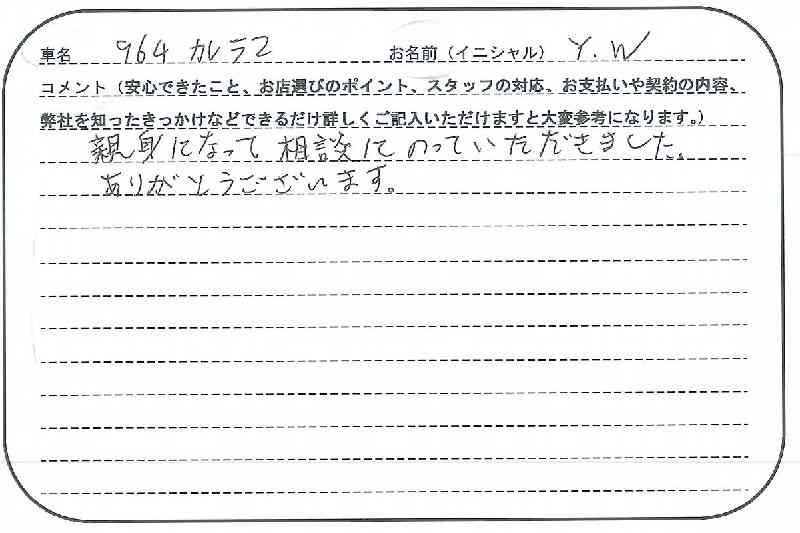 車名 964 カレラ2 お名前（イニシャル） Y.W
コメント（安心できたこと、お店選びのポイント、スタッフの対応、お支払いや契約の内容、
弊社を知ったきっかけなどできるだけ詳しくご記入いただけますと大変参考になります。）
親身になって相談にのっていただきました。
ありがとうございます。